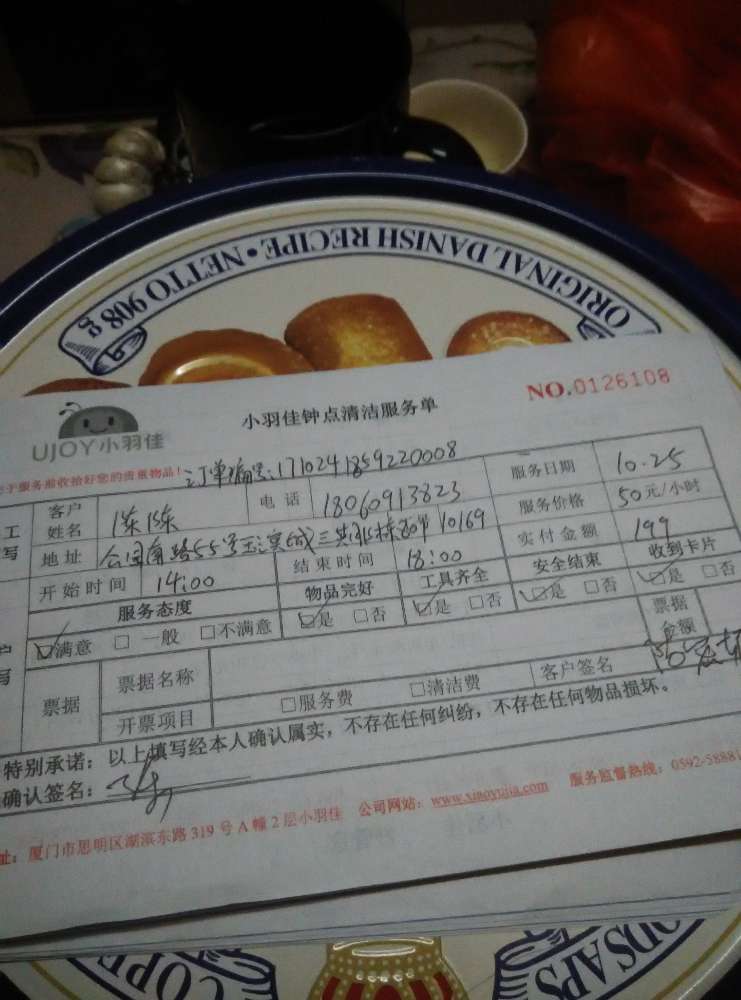 ORIGINAL DANISH RECIPE • NETTO 908 g
UJOY小羽佳
小羽佳钟点清洁服务单
NO.0126108
于服务前收拾好您的贵重物品!
订单编号:1710241859220008
客户姓名 陈陈 电话 18060913823 服务日期 10.25
地址 公园南路55号 10169 服务价格 50元/小时
开始时间 14:00 结束时间 18:00 实付金额 199
服务态度 物品完好 工具齐全 安全结束 收到卡片
☑满意 □一般 □不满意 ☑是 □否 ☑是 □否 ☑是 □否 ☑是 □否
票据 票据名称 票据金额
开票项目 □服务费 □清洁费 客户签名
特别承诺:以上填写经本人确认属实,不存在任何纠纷,不存在任何物品损坏。
确认签名:
址:厦门市思明区湖滨东路319号A幢2层小羽佳 公司网站:www.xiaoyujia.com 服务监督热线:0592-58881